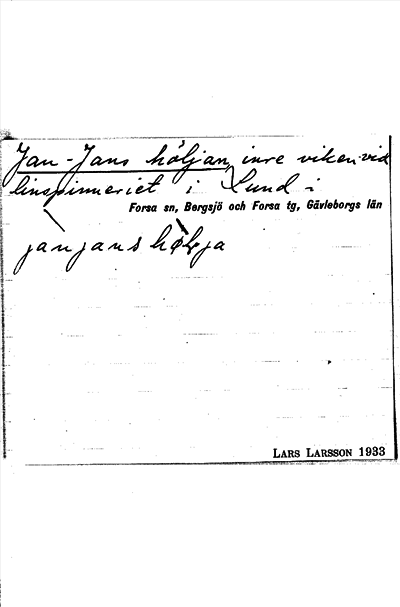 Jan-Jans höljan, inre viken vid
linspinneriet i Lund i
Forsa sn, Bergsjö och Forsa tg, Gävleborgs län
janjans hølja
LARS LARSSON 1933